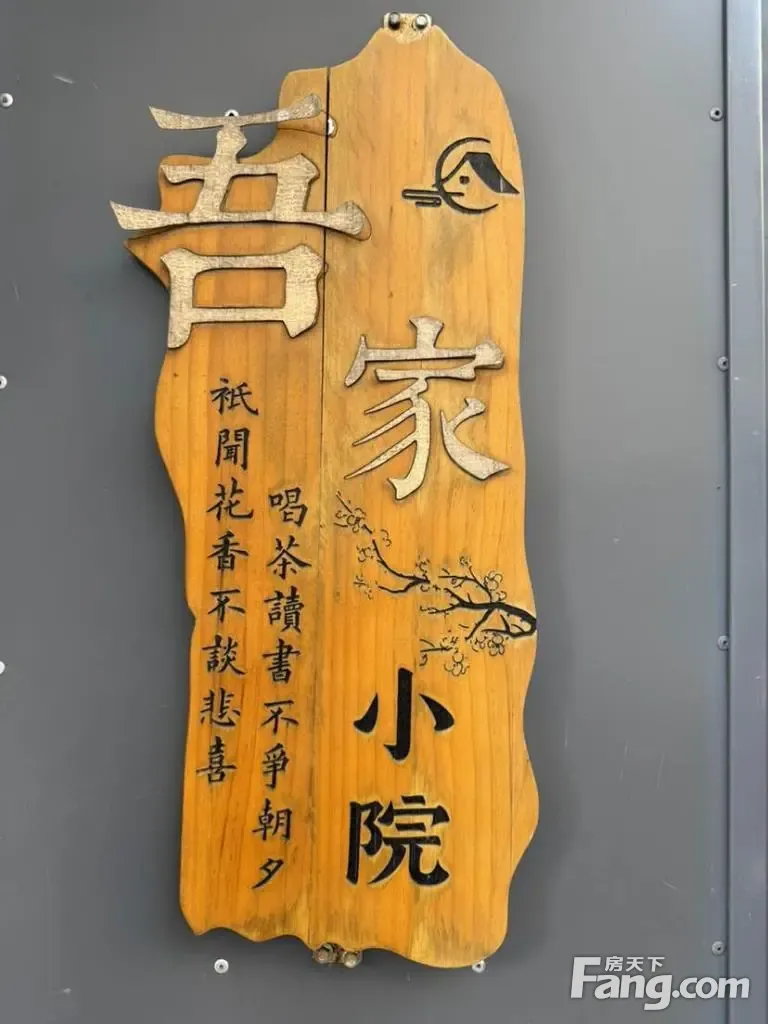 吾家小院
衹聞花香不談悲喜
喝茶讀書不爭朝夕
房天下
Fang.com